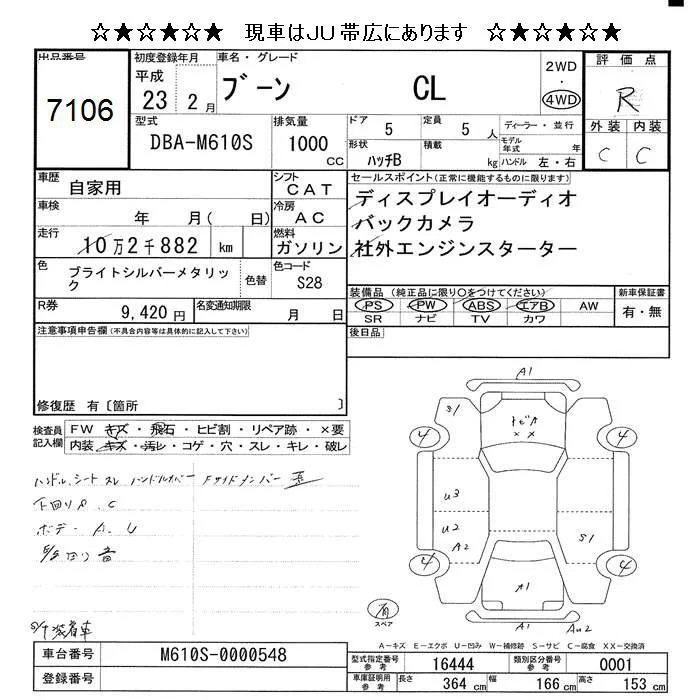 ☆★☆★☆★☆ 現車はJU帯広にあります ☆★☆★☆★☆
出品番号 7106
初度登録年月 平成 23年 2月
車名・グレード ブーン CL
2WD ・ 4WD
評価点 R
外装 内装
C C
型式 DBA-M610S
排気量 1000 CC
ドア 5
定員 5 人
ディーラー・並行
形状 ハッチB
積載 kg
モデル年式 年
ハンドル 左・右
車歴 自家用
シフト CAT
車検 年 月( 日)
冷房 AC
走行 10万2千882 km
燃料 ガソリン
色 ブライトシルバーメタリック
色替
色コード S28
R券 9,420円
名変通知期限 月 日
セールスポイント(正常に機能するものに限ります)
ディスプレイオーディオ
バックカメラ
社外エンジンスターター
装備品 (純正品に限り○をつけてください)
PS PW ABS エアB AW
SR ナビ TV カワ
新車保証書
有・無
後日品
注意事項申告欄(不具合内容等は具体的に記入して下さい)
修復歴 有〔箇所 〕
検査員記入欄
FW キズ・飛石・ヒビ割・リペア跡・×要
内装 キズ・汚レ・コゲ・穴・スレ・キレ・破レ
ハンドル、シート スレ ハンドルカバー Fサイドメンバー 歪
下回りP、C
ボデー A、U
音
装着車
A1
S1
トビA
××
4 4
U3
U2
A2
S1
4 4
A1
A1
AU2
有
スペア
A-キズ E-エクボ U-凹み W-補修跡 S-サビ C-腐食 XX-交換済
車台番号 M610S-0000548
登録番号
型式指定番号 参考 16444
類別区分番号 参考 0001
車庫証明用 参考 長さ 364 cm 幅 166 cm 高さ 153 cm